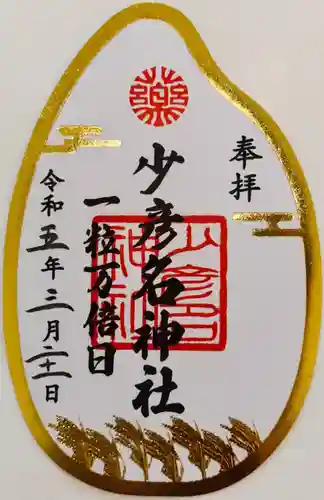 奉拝
薬
少彦名神社
一粒万倍日
令和五年三月二十一日